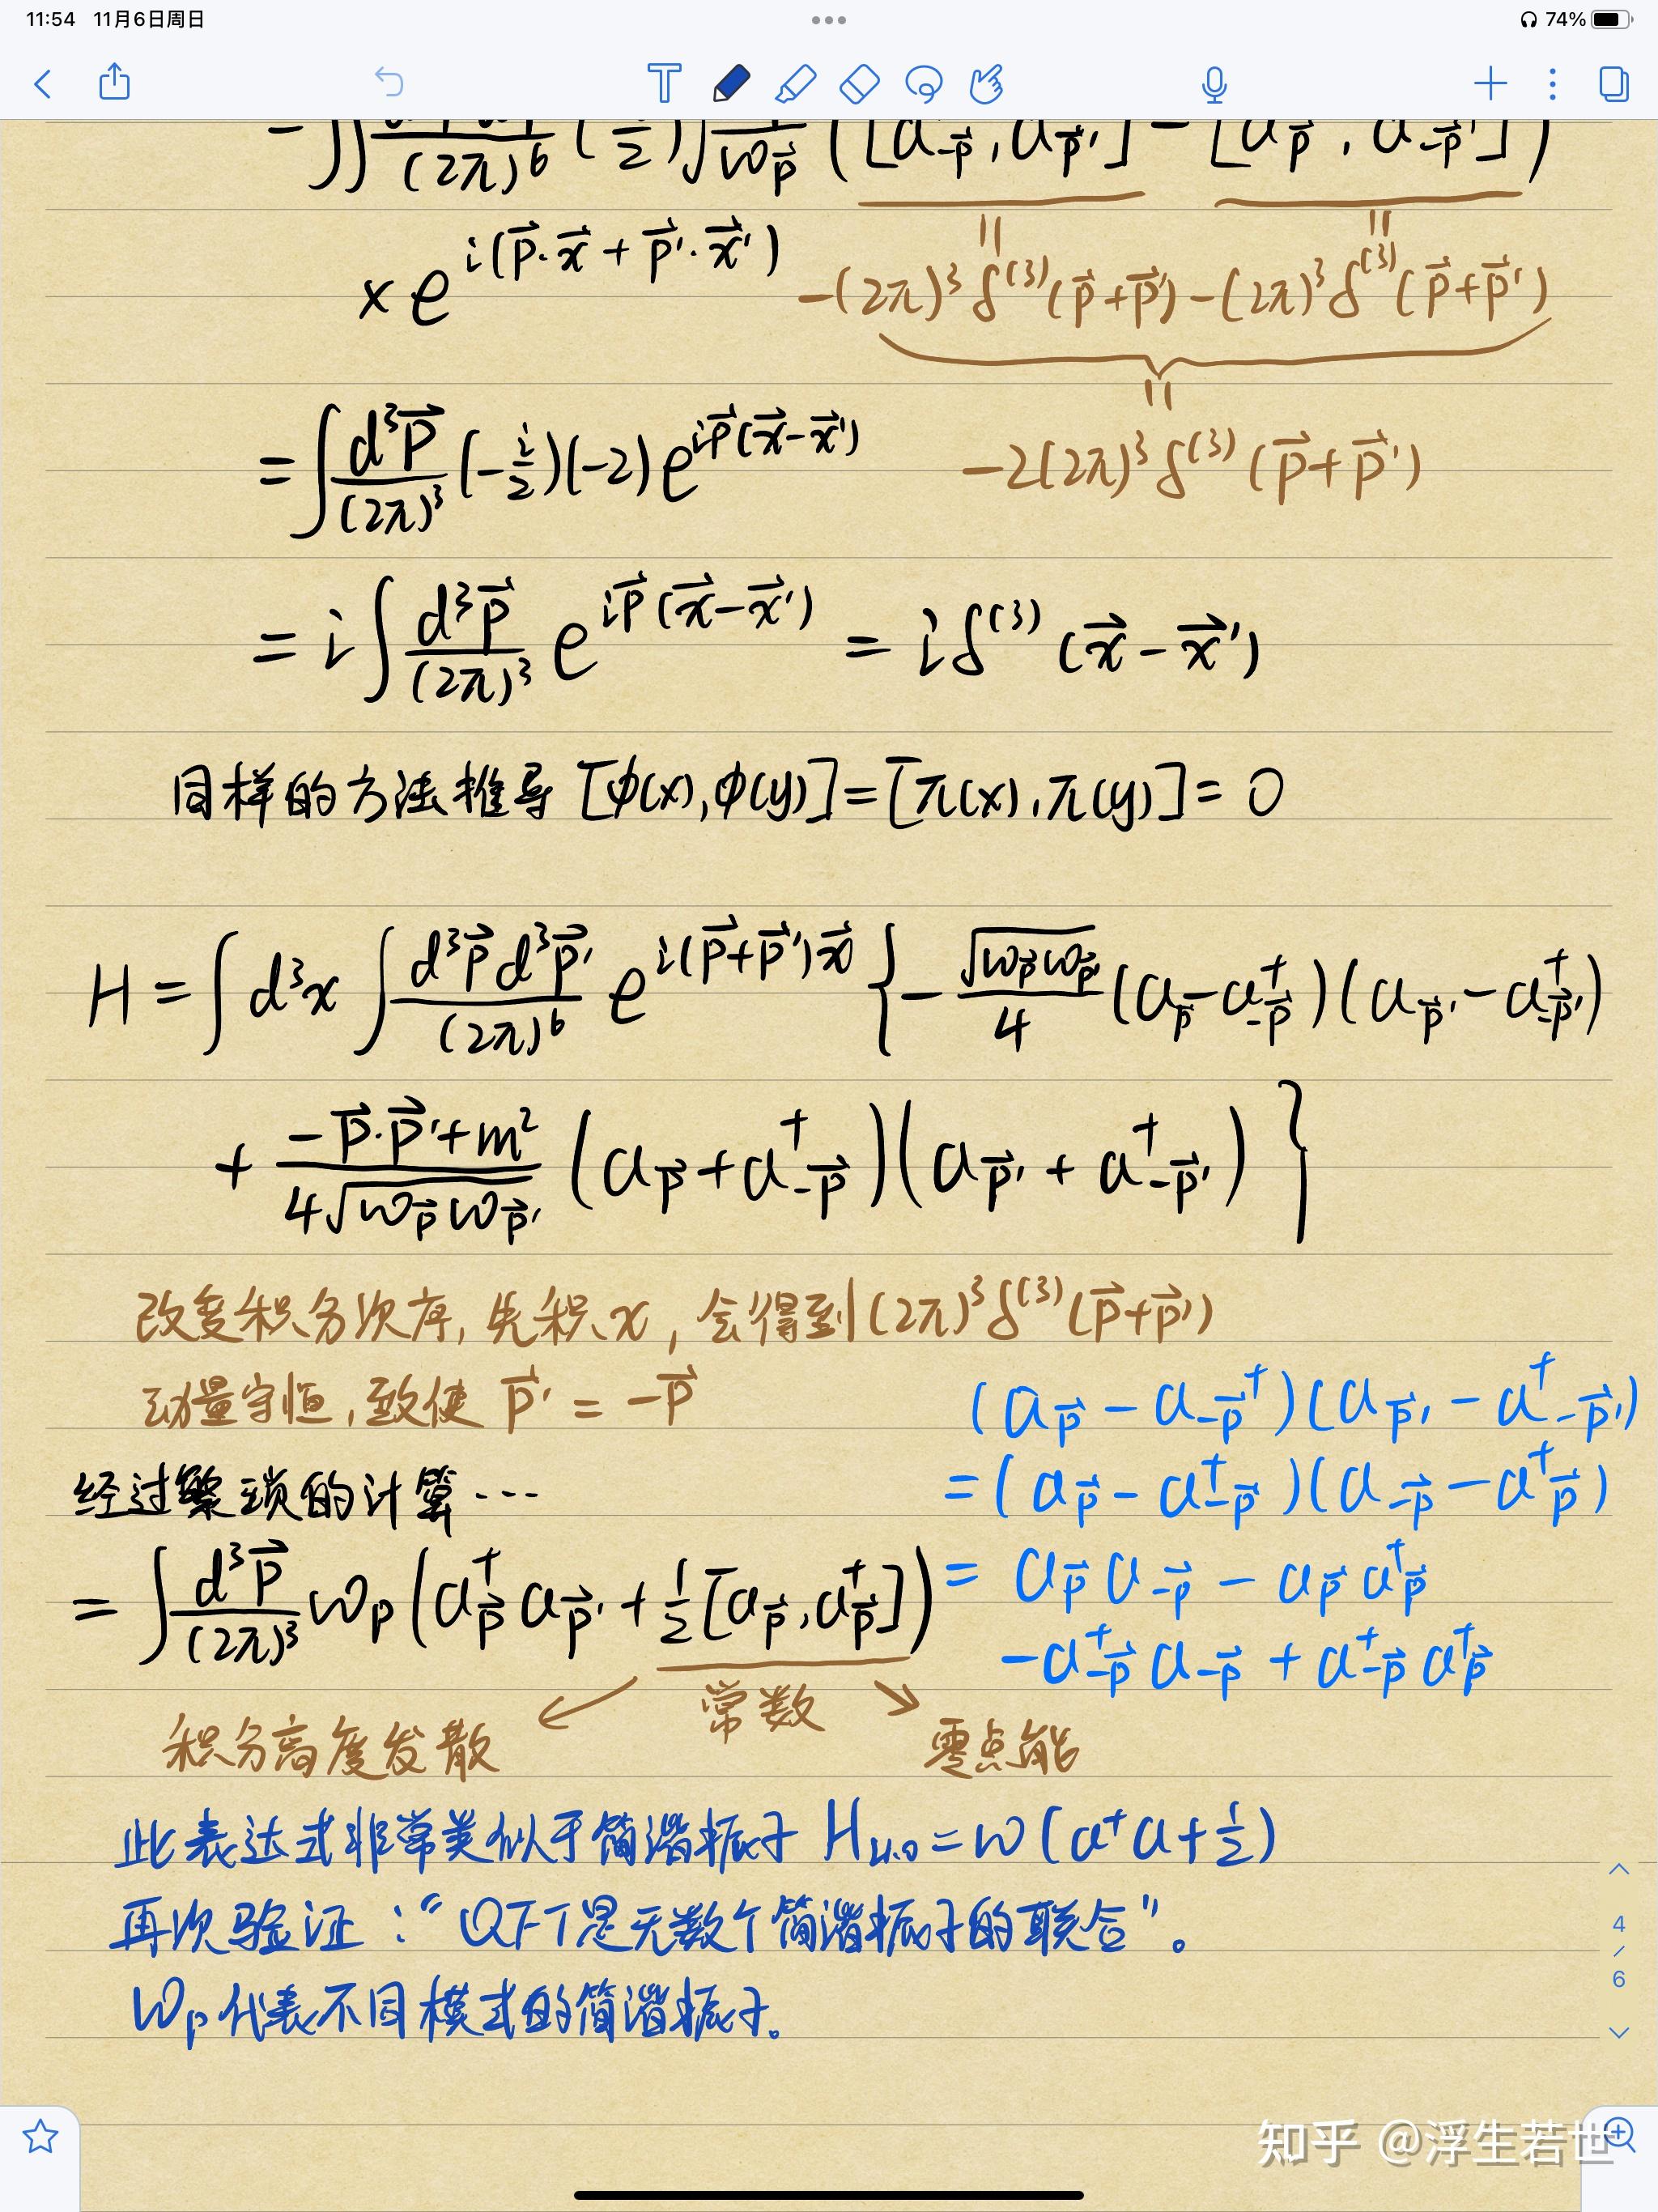 11:54 11月6日周日
74%
(2π)⁶ 2 ω_p⃗ ([a_-p⃗, a_p⃗'] - [a_p⃗, a_-p⃗'])
× e^{i(p⃗·x⃗ + p⃗'·x⃗')}
-(2π)³δ⁽³⁾(p⃗+p⃗') -(2π)³δ⁽³⁾(p⃗+p⃗')
= ∫ d³p⃗/(2π)³ (-i/2)(-2) e^{ip⃗(x⃗-x⃗')}
-2(2π)³δ⁽³⁾(p⃗+p⃗')
= i∫ d³p⃗/(2π)³ e^{ip⃗(x⃗-x⃗')} = iδ⁽³⁾(x⃗-x⃗')
同样的方法推导 [φ(x),φ(y)]=[π(x),π(y)]=0
H = ∫d³x ∫ d³p⃗d³p⃗'/(2π)⁶ e^{i(p⃗+p⃗')x⃗} { - √(ω_p⃗ω_p⃗')/4 (a_p⃗ - a†_-p⃗)(a_p⃗' - a†_-p⃗')
+ (-p⃗·p⃗'+m²)/(4√(ω_p⃗ω_p⃗')) (a_p⃗ + a†_-p⃗)(a_p⃗' + a†_-p⃗') }
改变积分次序,先积x,会得到(2π)³δ⁽³⁾(p⃗+p⃗')
动量守恒,致使 p⃗' = -p⃗
经过繁琐的计算…
= ∫ d³p⃗/(2π)³ ω_p (a†_p⃗ a_p⃗' + 1/2[a_p⃗, a†_p⃗])
(a_p⃗ - a_-p⃗†)(a_p⃗' - a†_-p⃗')
= (a_p⃗ - a†_-p⃗)(a_-p⃗ - a†_p⃗)
= a_p⃗ a_-p⃗ - a_p⃗ a†_p⃗
- a†_-p⃗ a_-p⃗ + a†_-p⃗ a†_p⃗
常数
积分高度发散
零点能
此表达式非常类似于简谐振子 H_H.O = ω(a†a+1/2)
再次验证:“QFT是无数个简谐振子的联合”。
ω_p代表不同模式的简谐振子。
4
/
6
知乎 @浮生若世